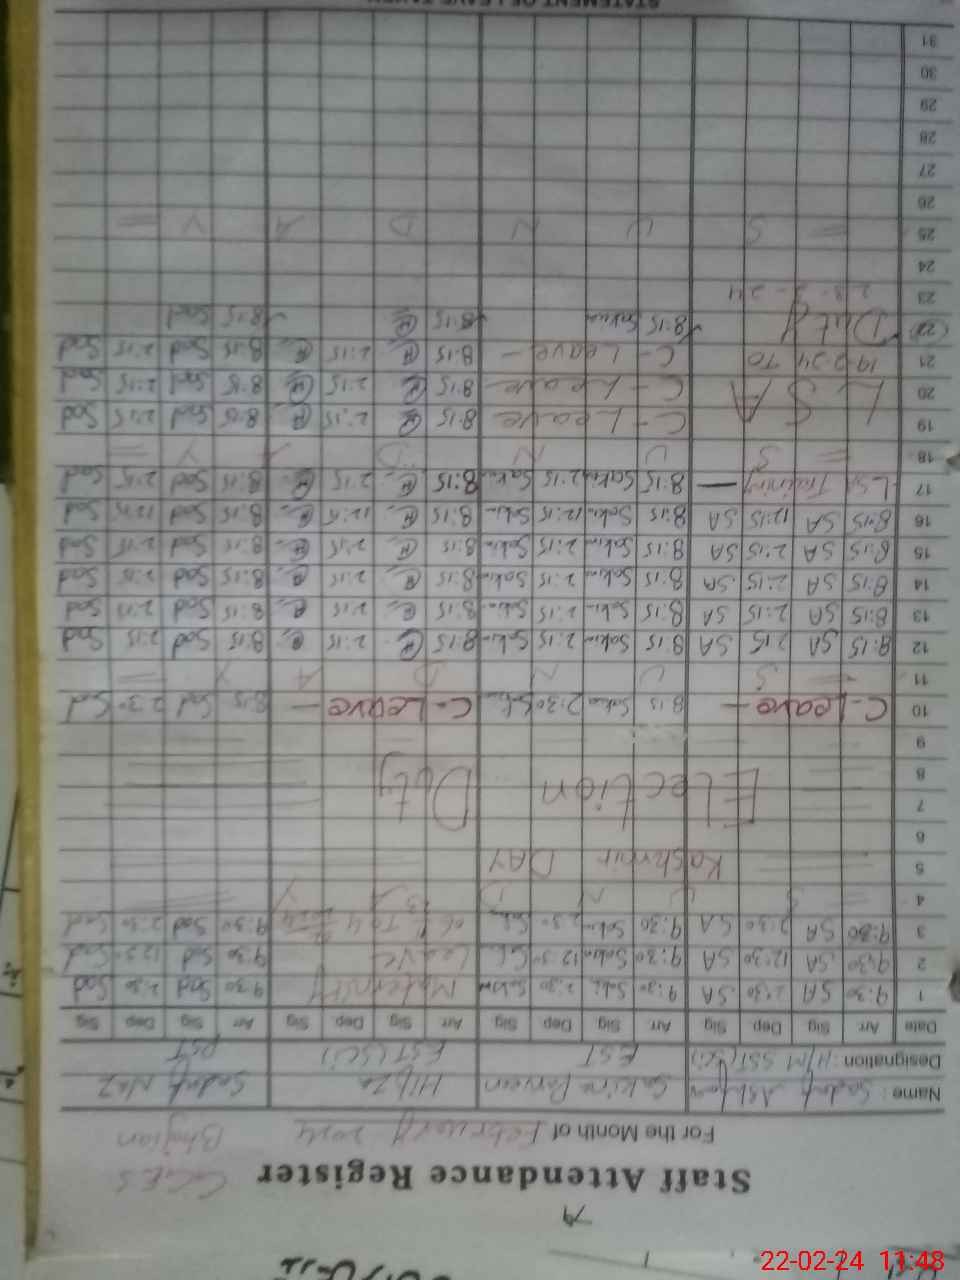 Staff Attendance Register
GGES
For the Month of February 2024 Bhajian
Name : Sadaf Ashfaq Sakina Parveen Hifza Sadaf Naz
Designation : H/M SST(Sci) EST EST(Sci) PST
Date Arr Sig Dep Sig Arr Sig Dep Sig Arr Sig Dep Sig Arr Sig Dep Sig
1 9:30 SA 2:30 SA 9:30 2:30 Maternity 9:30 Sad 2:30 Sad
2 9:30 SA 12:30 SA 9:30 Sakin 12:30 Leave 9:30 Sad 12:30 Sad
3 9:30 SA 2:30 SA 9:30 2:30 9:30 Sad 2:30 Sad
4 S U N D A Y
5 Kashmir DAY
6
7 Election Duty
8
9
10 C-Leave – 8:15 Sakina 2:30 C-Leave – 8:15 Sad 2:30 Sad
11 S U N D A Y =
12 8:15 SA 2:15 SA 8:15 Sakin 2:15 Sakin 8:15 2:15 8:15 Sad 2:15 Sad
13 8:15 SA 2:15 SA 8:15 Sakin 2:15 Sakin 8:15 2:15 8:15 Sad 2:15 Sad
14 8:15 SA 2:15 SA 8:15 Sakin 2:15 Sakin 8:15 2:15 8:15 Sad 2:15 Sad
15 8:15 SA 2:15 SA 8:15 Sakin 2:15 Sakin 8:15 2:15 8:15 Sad 2:15 Sad
16 8:15 SA 12:15 SA 8:15 Sakin 12:15 Sakin 8:15 12:15 8:15 Sad 12:15 Sad
17 LSA Training — 8:15 Sakin 2:15 Sakin 8:15 2:15 8:15 Sad 2:15 Sad
18 = S U N D A Y =
19 C-Leave 8:15 2:15 8:15 Sad 2:15 Sad
20 L S A C-Leave 8:15 2:15 8:15 Sad 2:15 Sad
21 19-2-24 TO C-Leave – 8:15 2:15 8:15 Sad 2:15 Sad
22 Duty 8:15 Sakina 8:15 8:15 Sad
23 23-2-24
24
25 = S U N D A Y =
26
27
28
29
30
31
STATEMENT OF LEAVE TAKEN
22-02-24 11:48